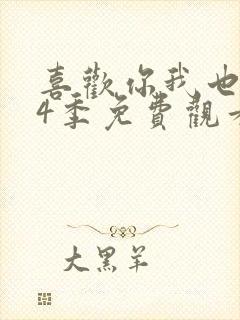 喜歡你我也
4季免費觀看
大黑羊